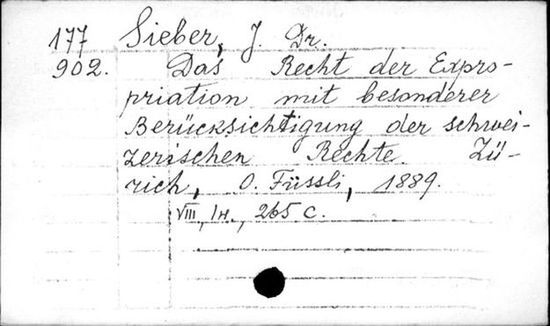 177 Sieber, J. Dr.
902. Das Recht der Expro-
priation mit besonderer
Berücksichtigung der schwei-
zerischen Rechte. Zü-
rich, O. Füssli, 1889.
VIII, 1н., 265 с.